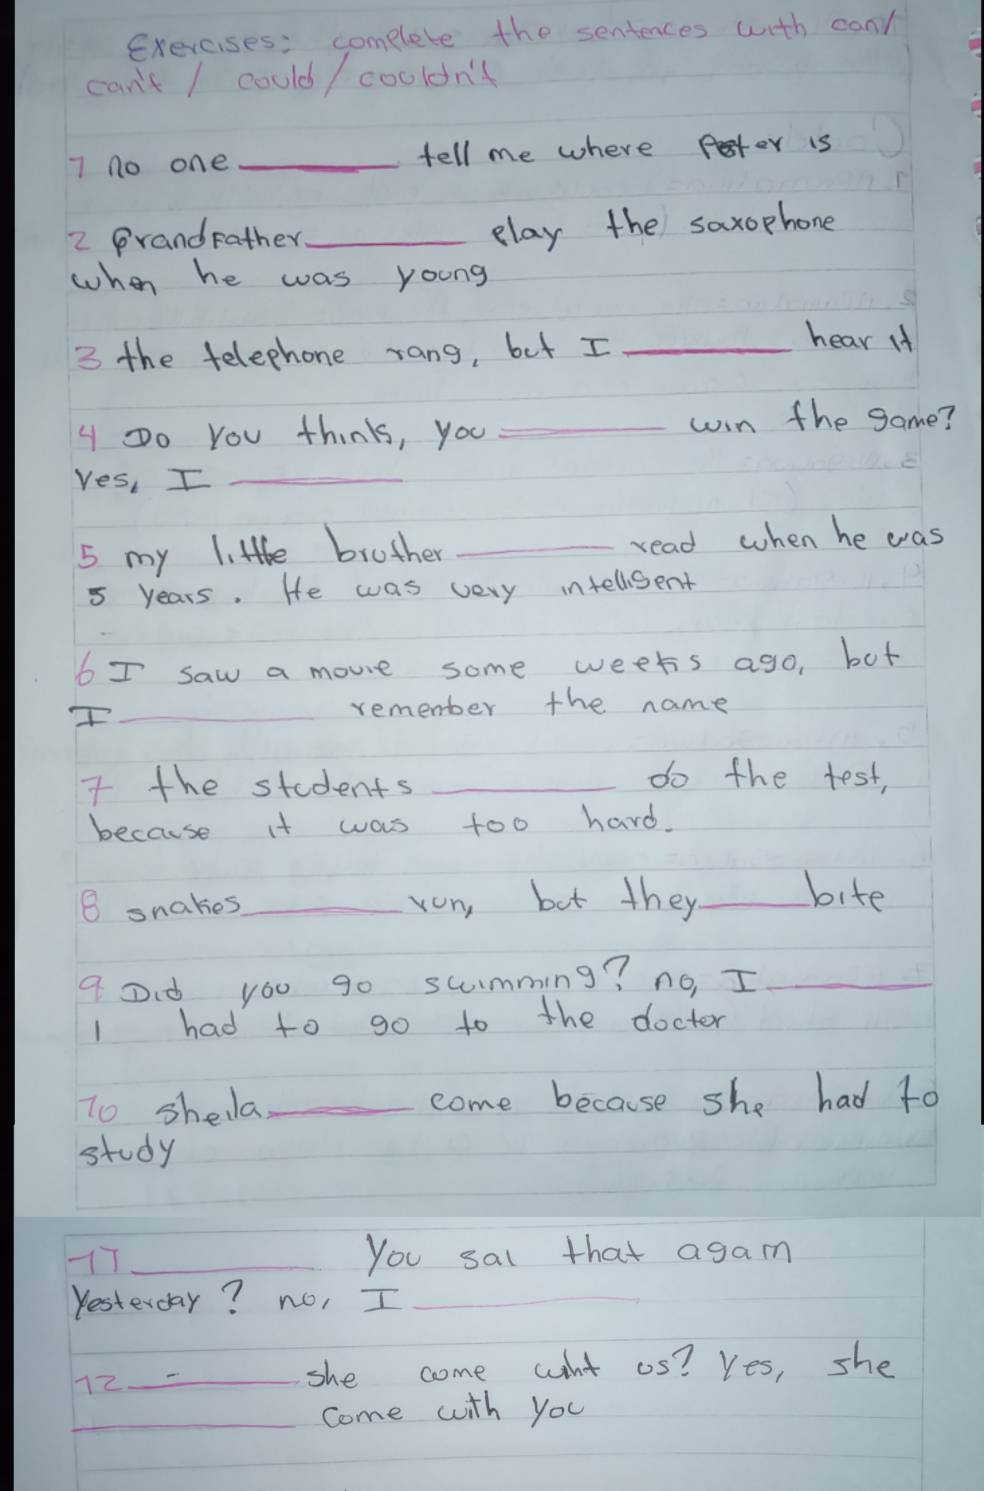 Exercises: complete the sentences with can/
can't / could / couldn't
1 no one ________ tell me where Peter is
2 Grandfather ________ play the saxophone
when he was young
3 the telephone rang, but I ________ hear it
4 Do you think, you ________ win the game?
Yes, I ________
5 my little brother ________ read when he was
5 years. He was very intelligent
6 I saw a movie some weeks ago, but
I ________ remember the name
7 the students ________ do the test,
because it was too hard.
8 snakes ________ run, but they ________ bite
9 Did you go swimming? no, I ________
I had to go to the doctor
10 sheila ________ come because she had to
study
11 ________ You sai that again
Yesterday? no, I ________
12 ________ she come wiht us? Yes, she
________ come with you